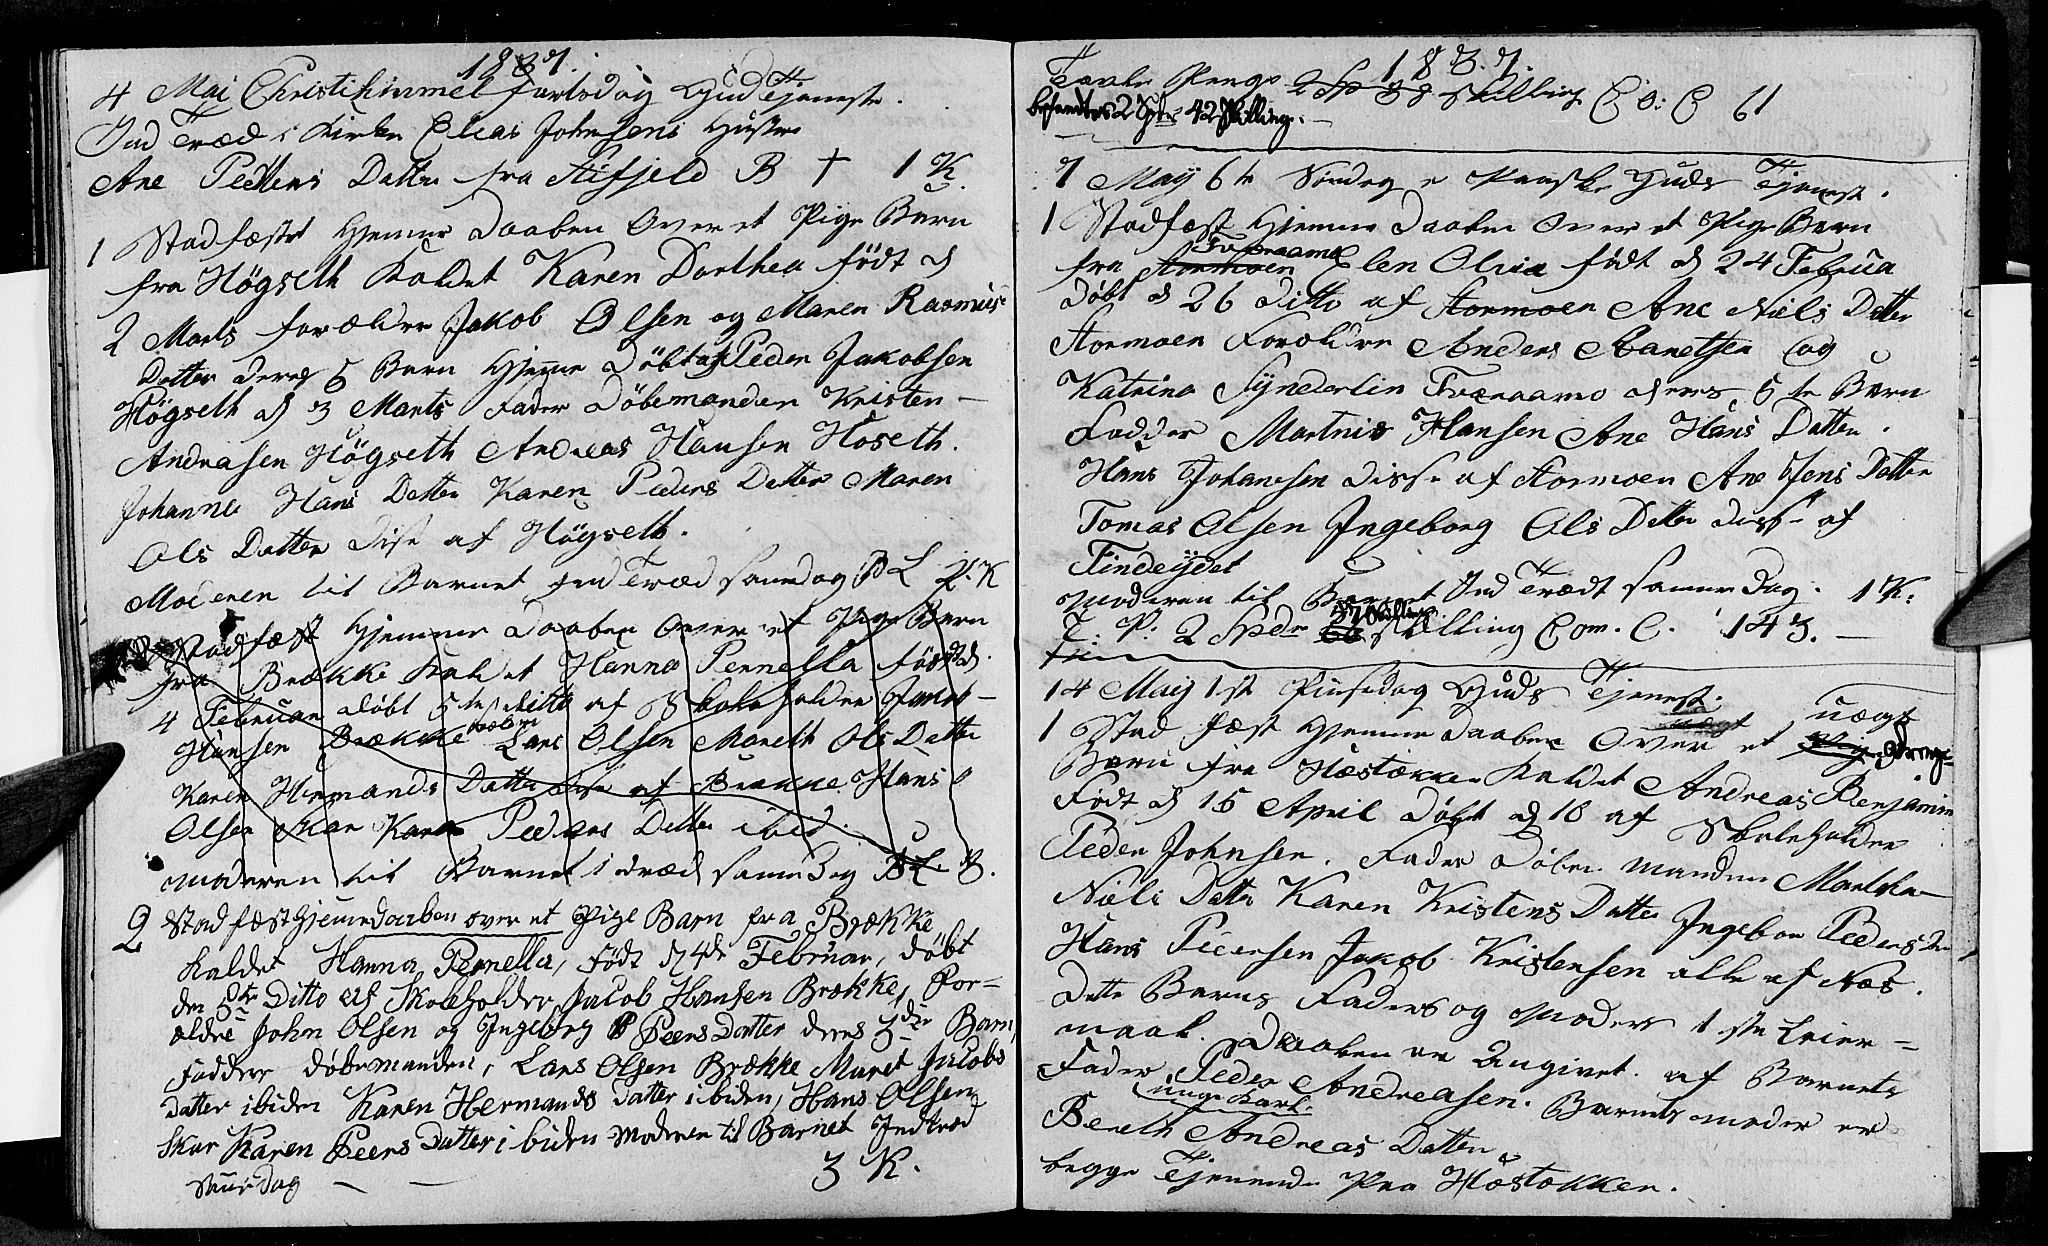 1837.
4 Mai Christihimmelfartsdag Gudstjeneste.
Ind Træd i Kirken Elias Johnsens Hustru
Ane Peders Datter fra Alfjeld B † 1 K.
1 Stadfæstet Hjemme Daaben Over et Pige Barn
fra Högseth Kaldet Karen Dorthea födt d
2 Marts forældre Jakob Olsen og Maren Rasmus
Datter deres 5 Barn Hjemme Döbt af Peder Jakobsen
Högseth d 3 Marts Fader Döbemanden Kristen
Andrasen Högseth Andreas Hansen Hoseth.
Johanna Hans Datter Karen Peders Datter Maren
Ols Datter disse af Högseth.
Moderen til Barnet Ind Træd samedag B L 2. K
Stadfæst Hjemme Daaben Over et Pige Barn
fra Brække Kaldet Hanna Pernella född d.
4 Februar döbt 5te ditto af Skoleholder Jacob
Hansen Brække Lars Olsen Mareth Ols Datter
Karen Hermands Datter disse af Brække Hans
Olsen Skar Karen Peders Datter ibid.
Moderen til Barnet i Træd same Dag
2 Stadfæst Hjemedaaben over et Pige Barn fra Brække
kaldet Hanna Pernella, Födt d 4de Februar, döbt
den 5te Ditto af Skoleholder Jacob Hansen Brække, For=
ældre John Olsen og Ingeborg Peers Datter deres 3die Barn,
Faddere döbemanden, Lars Olsen Brække Maret Jacobs
datter ibiden Karen Hermands Datter ibiden, Hans Olsen
Skar Karen Peers Datter ibiden Moderen til Barnet Indtræd
samedag — — 3 K.
1837.
Tavle Penge 2 Sp 38 skilling Co: C 61
befandtes 2 Spdr 42 Skilling. —
7 May 6te Söndag e Paaske Guds Tjenest.
1 Stadfæst Hjemme Daaben Over et Pige Barn
Tværaamo
fra Stormoen Elen Olixa födt d 24 Februa
döbt d 26 ditto af Stormoen Ane Niels Datter
Stormoen Foreldre Anders Aanetsen og
Katrina Synderlin Tværaamo deres 5te Barn
Fadder Martnis Hansen Ane Hans Datter.
Hans Johansen disse af Stormoen Ane Jens Datter
Tomas Olsen Ingeborg Ols Datter disse af
Findeijdet
Moderen til Barnet Ind Trædt samme Dag. 1 K.
T. P. 2 Spdr skilling Com. C. 143. —
14 Maij 1st Pinsedag Guds Tjenest.
1 Stad fæst Hjemme Daaben Over et uægt
Barn fra Hæstøkken Kaldet Andreas Benjamin
Födt d 15 April Döbt d 18 af Skoleholder
Peder Johnsen. Fader Döbe manden
Niels Datter Karen Kristens Datter Ingebor Peders Da
Hans Peersen Jakob Kristensen alle af Næs.
Dette Barns Faders og Moders 1ste Leier=
maal. Daaben er Angivet af Barnets
Fader Peder Andreasen. Barnets moder er
unge Karl.
Bereth Andreas Datter
begge Tjenende Paa Höstokken.